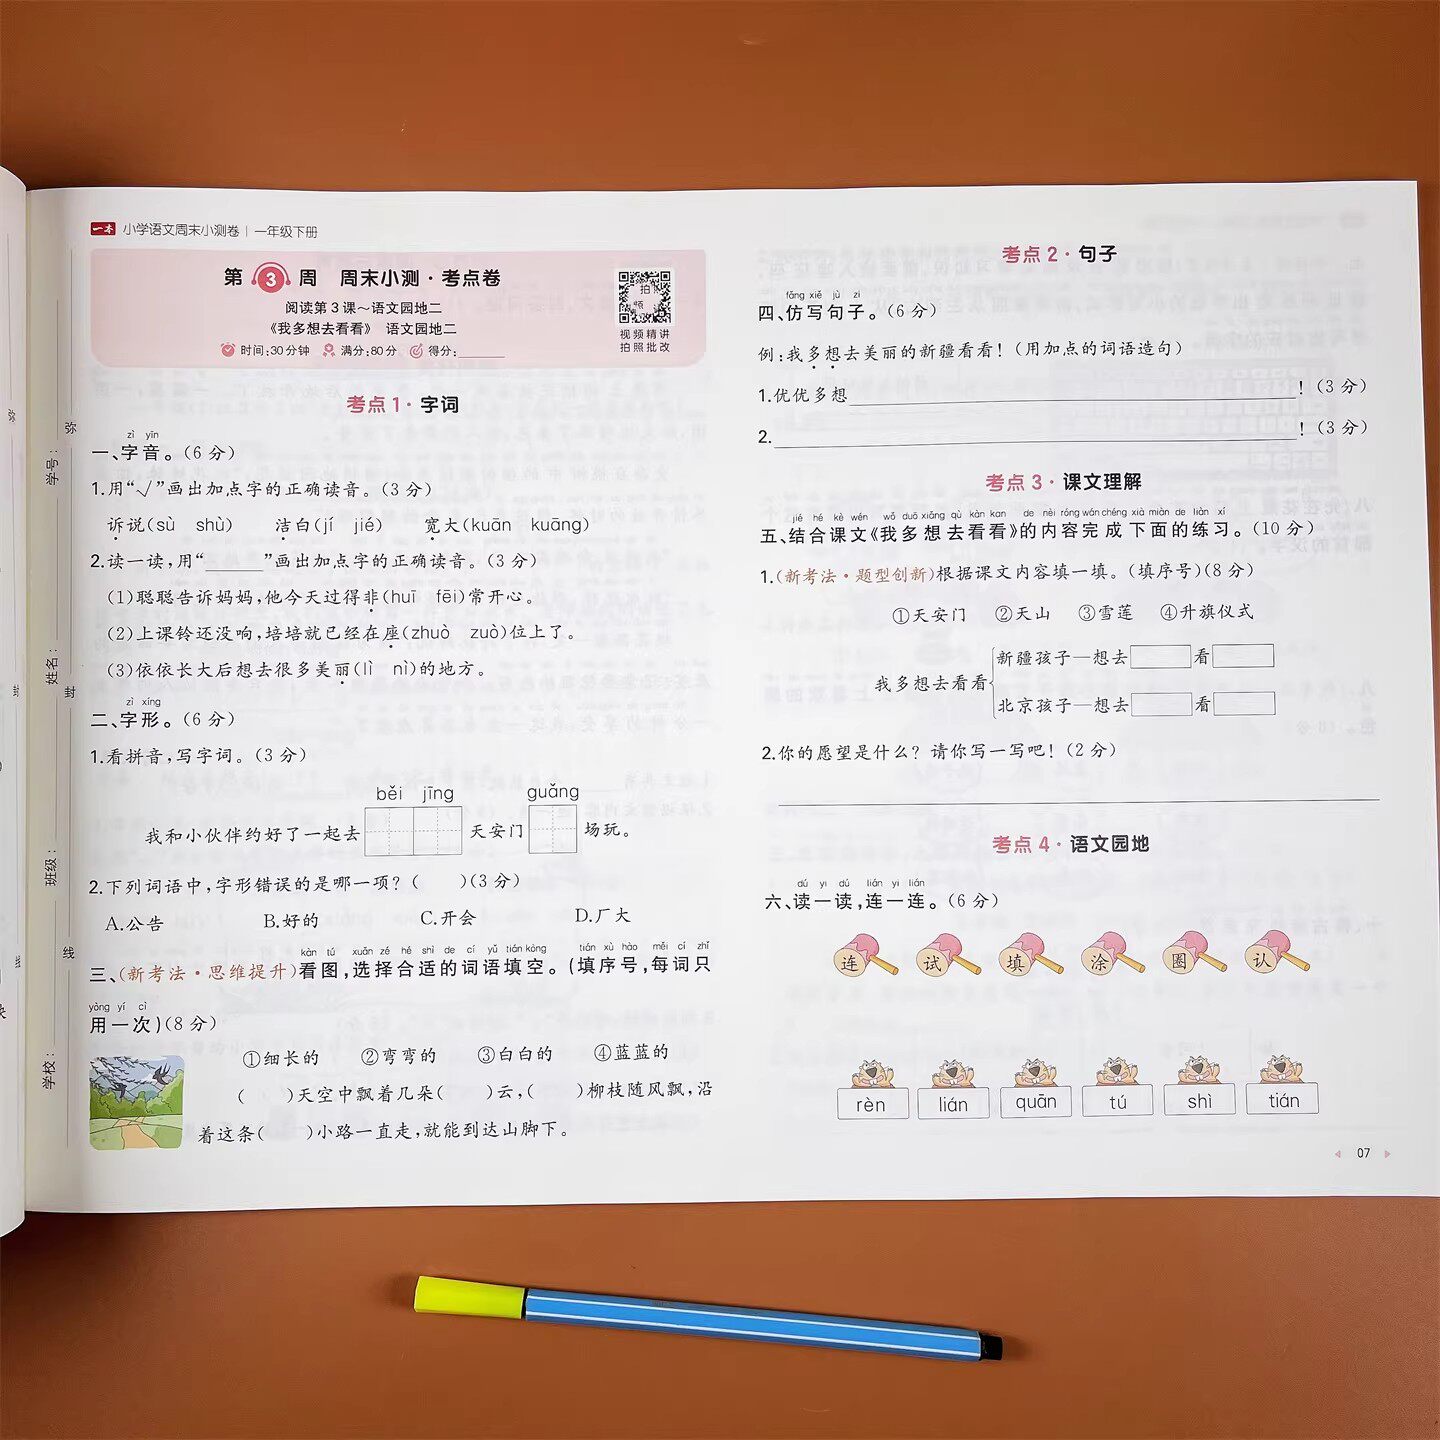 一本 小学语文周末小测卷 | 一年级下册
第3周 周末小测·考点卷
阅读第3课~语文园地二
《我多想去看看》 语文园地二
时间:30分钟 满分:80分 得分:______
视频精讲
拍照批改
弥
封
线
学号:
姓名:
班级:
学校:
考点1·字词
zì yīn
一、字音。(6分)
1.用“√”画出加点字的正确读音。(3分)
诉说(sù shù) 洁白(jí jié) 宽大(kuān kuāng)
2.读一读,用“______”画出加点字的正确读音。(3分)
(1)聪聪告诉妈妈,他今天过得非(huī fēi)常开心。
(2)上课铃还没响,培培就已经在座(zhuò zuò)位上了。
(3)依依长大后想去很多美丽(lì nì)的地方。
zì xíng
二、字形。(6分)
1.看拼音,写字词。(3分)
běi jīng guǎng
我和小伙伴约好了一起去 天安门 场玩。
2.下列词语中,字形错误的是哪一项?( )(3分)
A.公告 B.好的 C.开会 D.厂大
kàn tú xuǎn zé hé shì de cí yǔ tián kòng tián xù hào měi cí zhǐ
三、(新考法·思维提升)看图,选择合适的词语填空。(填序号,每词只
yòng yí cì
用一次)(8分)
①细长的 ②弯弯的 ③白白的 ④蓝蓝的
( )天空中飘着几朵( )云,( )柳枝随风飘,沿
着这条( )小路一直走,就能到达山脚下。
考点2·句子
fǎng xiě jù zi
四、仿写句子。(6分)
例:我多想去美丽的新疆看看!(用加点的词语造句)
1.优优多想______!(3分)
2.______!(3分)
考点3·课文理解
jié hé kè wén wǒ duō xiǎng qù kàn kan de nèi róng wán chéng xià miàn de liàn xí
五、结合课文《我多想去看看》的内容完成下面的练习。(10分)
1.(新考法·题型创新)根据课文内容填一填。(填序号)(8分)
①天安门 ②天山 ③雪莲 ④升旗仪式
新疆孩子—想去 看
我多想去看看
北京孩子—想去 看
2.你的愿望是什么?请你写一写吧!(2分)
考点4·语文园地
dú yi dú lián yi lián
六、读一读,连一连。(6分)
连 试 填 涂 圈 认
rèn lián quān tú shì tián
07